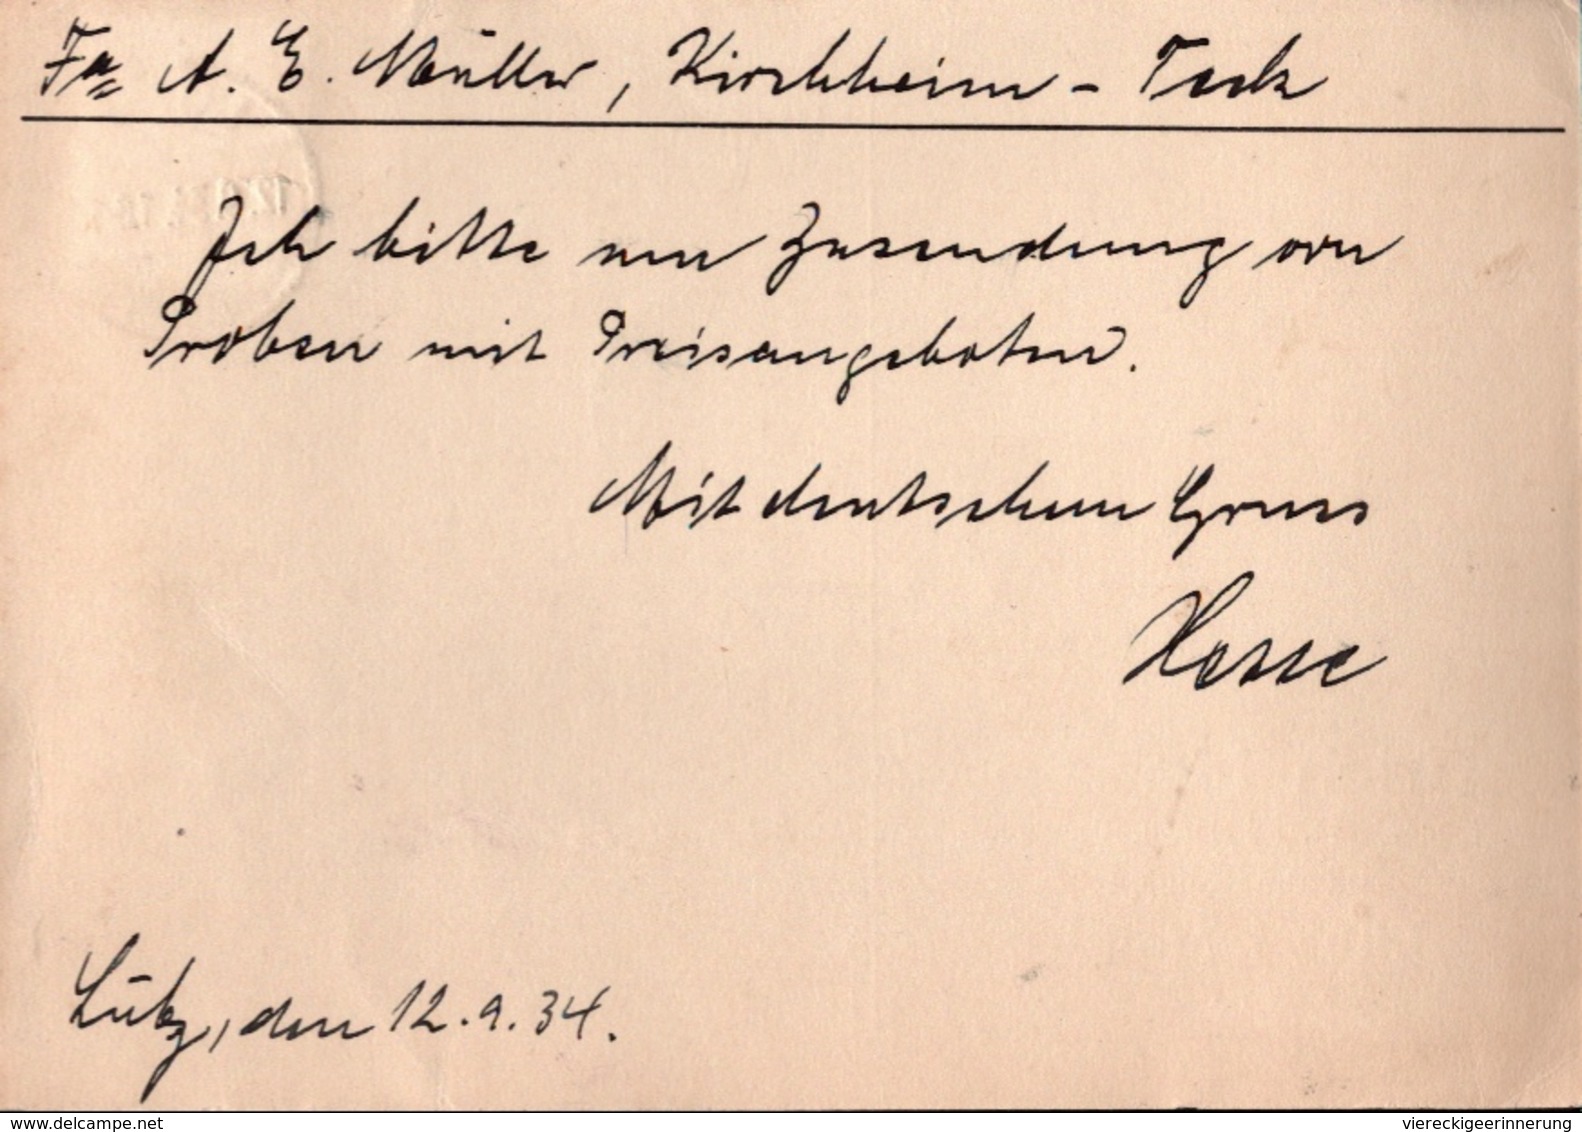 Fa A. E. Müller, Kirchheim - Teck
Ich bitte um Zusendung von
Proben mit Preisangeboten.
Mit deutschem Gruss
Hesse
Lübz, den 12.9.34.
www.delcampe.net
viereckigeerinnerung